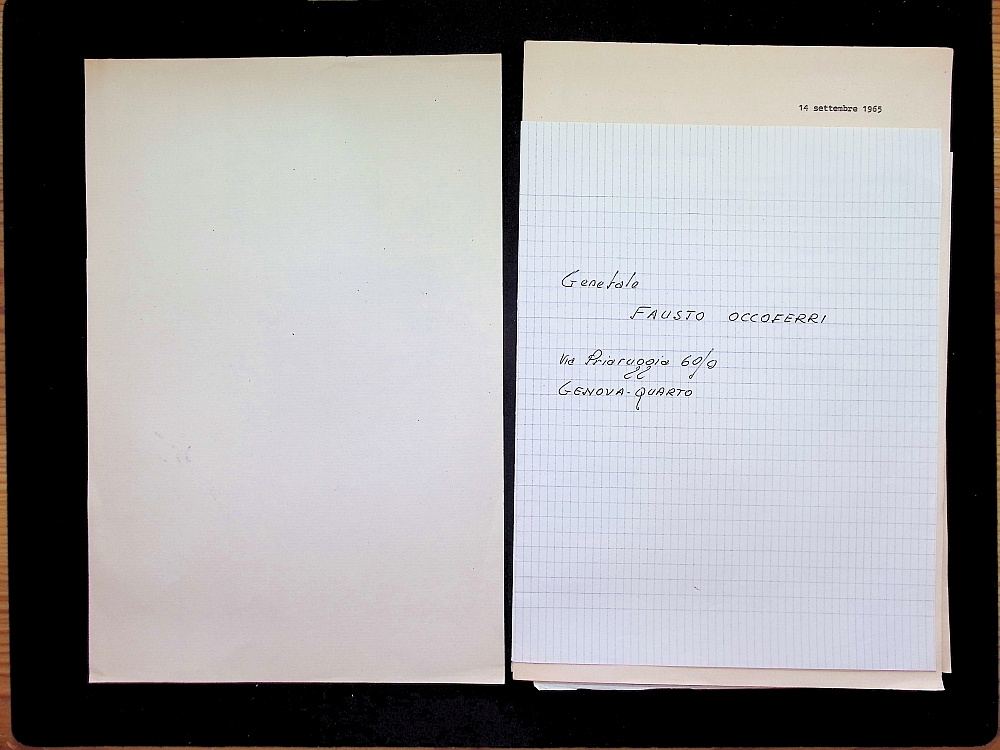 14 settembre 1965
Generale
FAUSTO OCCOFERRI
Via Priaruggia 60/9
GENOVA-QUARTO